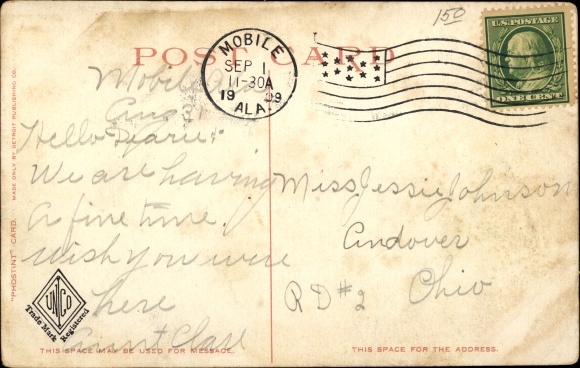 150
POST CARD
MOBILE
SEP 1
11-30A
1909
ALA.
U.S. POSTAGE
ONE CENT
Mobile Ala
Aug
Hello Dearie:
We are having
a fine time.
wish you were
here
Aunt Clase
Miss Jessie Johnson
Andover
RD #2 Ohio
"PHOSTINT" CARD. MADE ONLY BY DETROIT PUBLISHING CO.
VNCO
Trade Mark Registered
THIS SPACE MAY BE USED FOR MESSAGE.
THIS SPACE FOR THE ADDRESS.